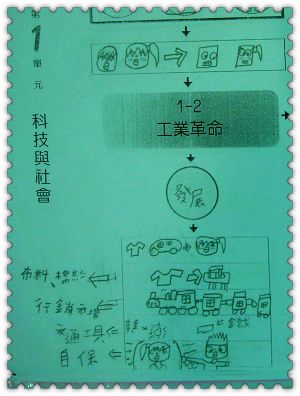 第1單元
科技與社會
1-2
工業革命
發展
布料、棉紗
行銷市場
交通工具
自保
鞋